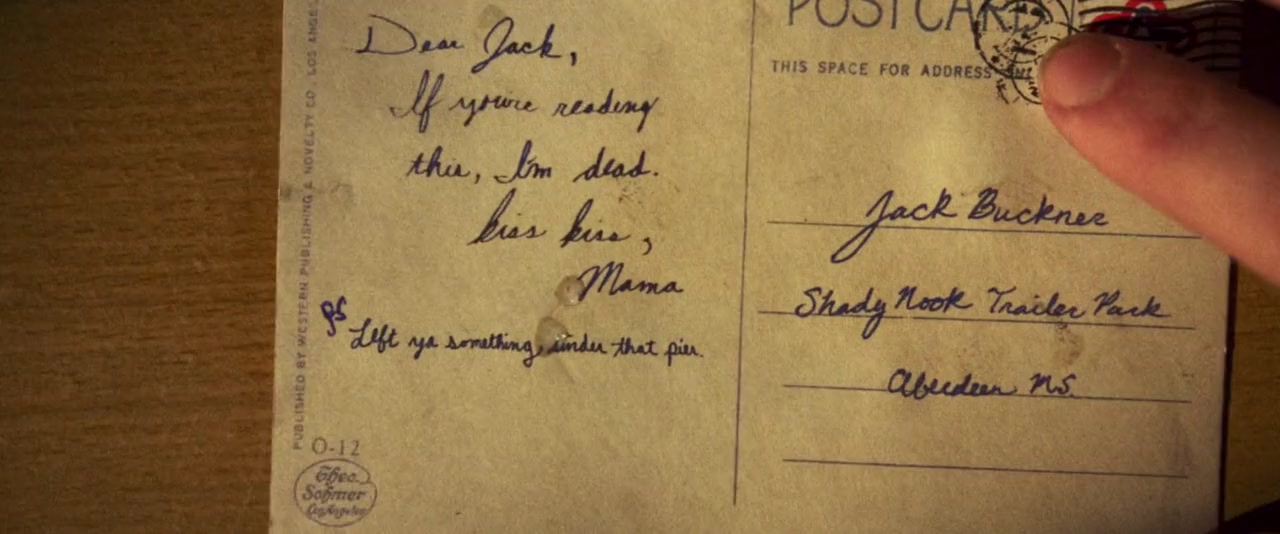 Dear Jack,
If you're reading
this, I'm dead.
kiss kiss,
Mama
PS
Left ya something under that pier.
POSTCARD
THIS SPACE FOR ADDRESS
Jack Buckner
Shady Nook Trailer Park
Aberdeen MS.
PUBLISHED BY WESTERN PUBLISHING & NOVELTY CO. LOS ANGE
O-12
Theo.
Sohmer
Los Angeles